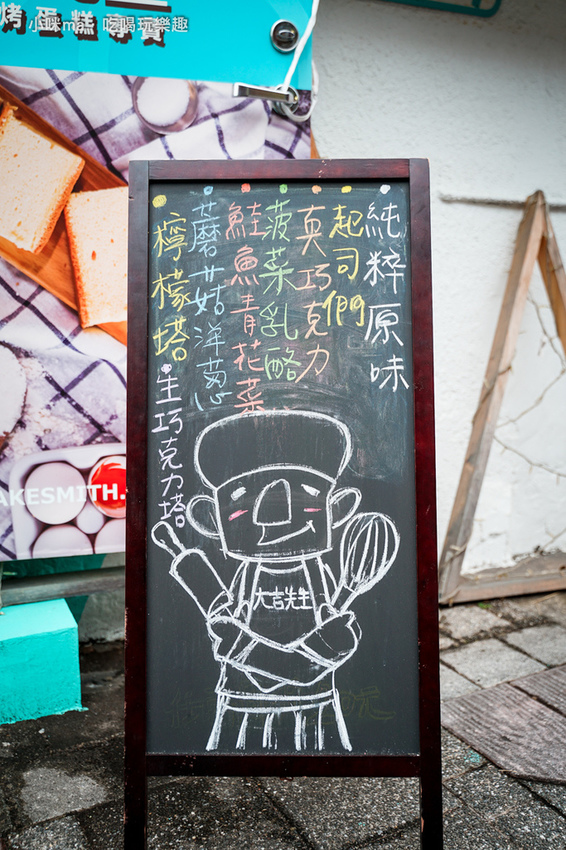 小咪ma 吃喝玩樂趣
烤蛋糕專賣
純粹原味
起司們
真巧克力
菠菜乳酪
鮭魚青花菜
蘑菇洋蔥
檸檬塔
生巧克力塔
大吉先生
AKESMITH.